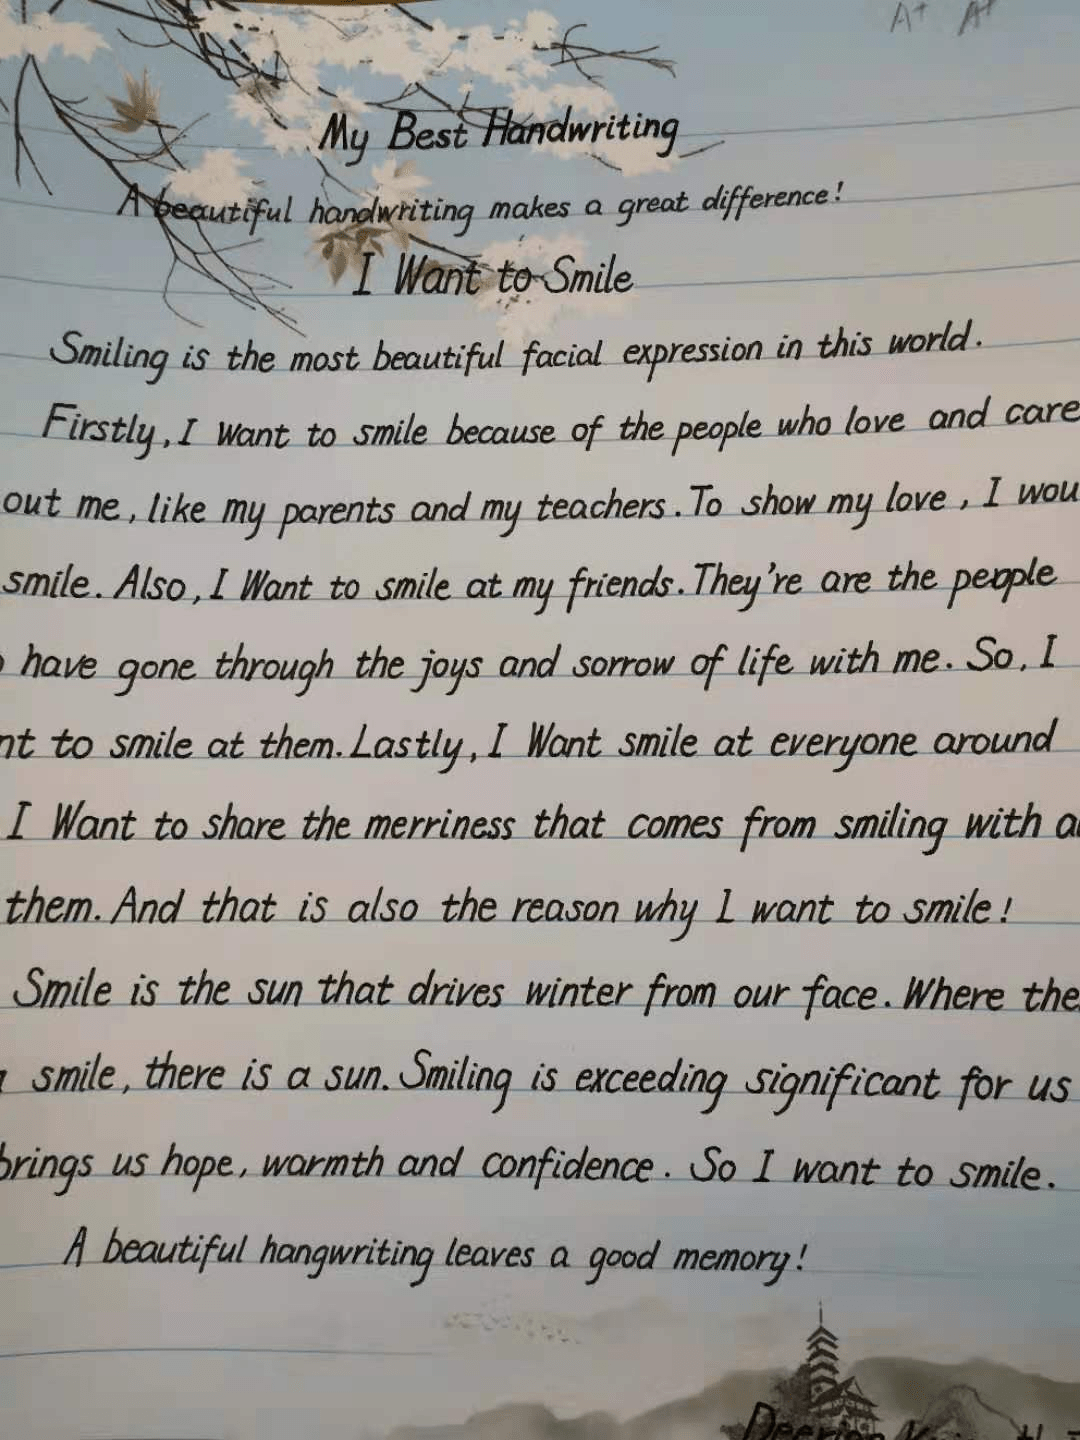 A+ A+
My Best Handwriting
A beautiful handwriting makes a great difference!
I Want to Smile
Smiling is the most beautiful facial expression in this world.
Firstly, I want to smile because of the people who love and care
out me, like my parents and my teachers. To show my love, I wou
smile. Also, I Want to smile at my friends. They're are the people
have gone through the joys and sorrow of life with me. So, I
nt to smile at them. Lastly, I Want smile at everyone around
I Want to share the merriness that comes from smiling with a
them. And that is also the reason why I want to smile!
Smile is the sun that drives winter from our face. Where the
smile, there is a sun. Smiling is exceeding significant for us
brings us hope, warmth and confidence. So I want to smile.
A beautiful hangwriting leaves a good memory!